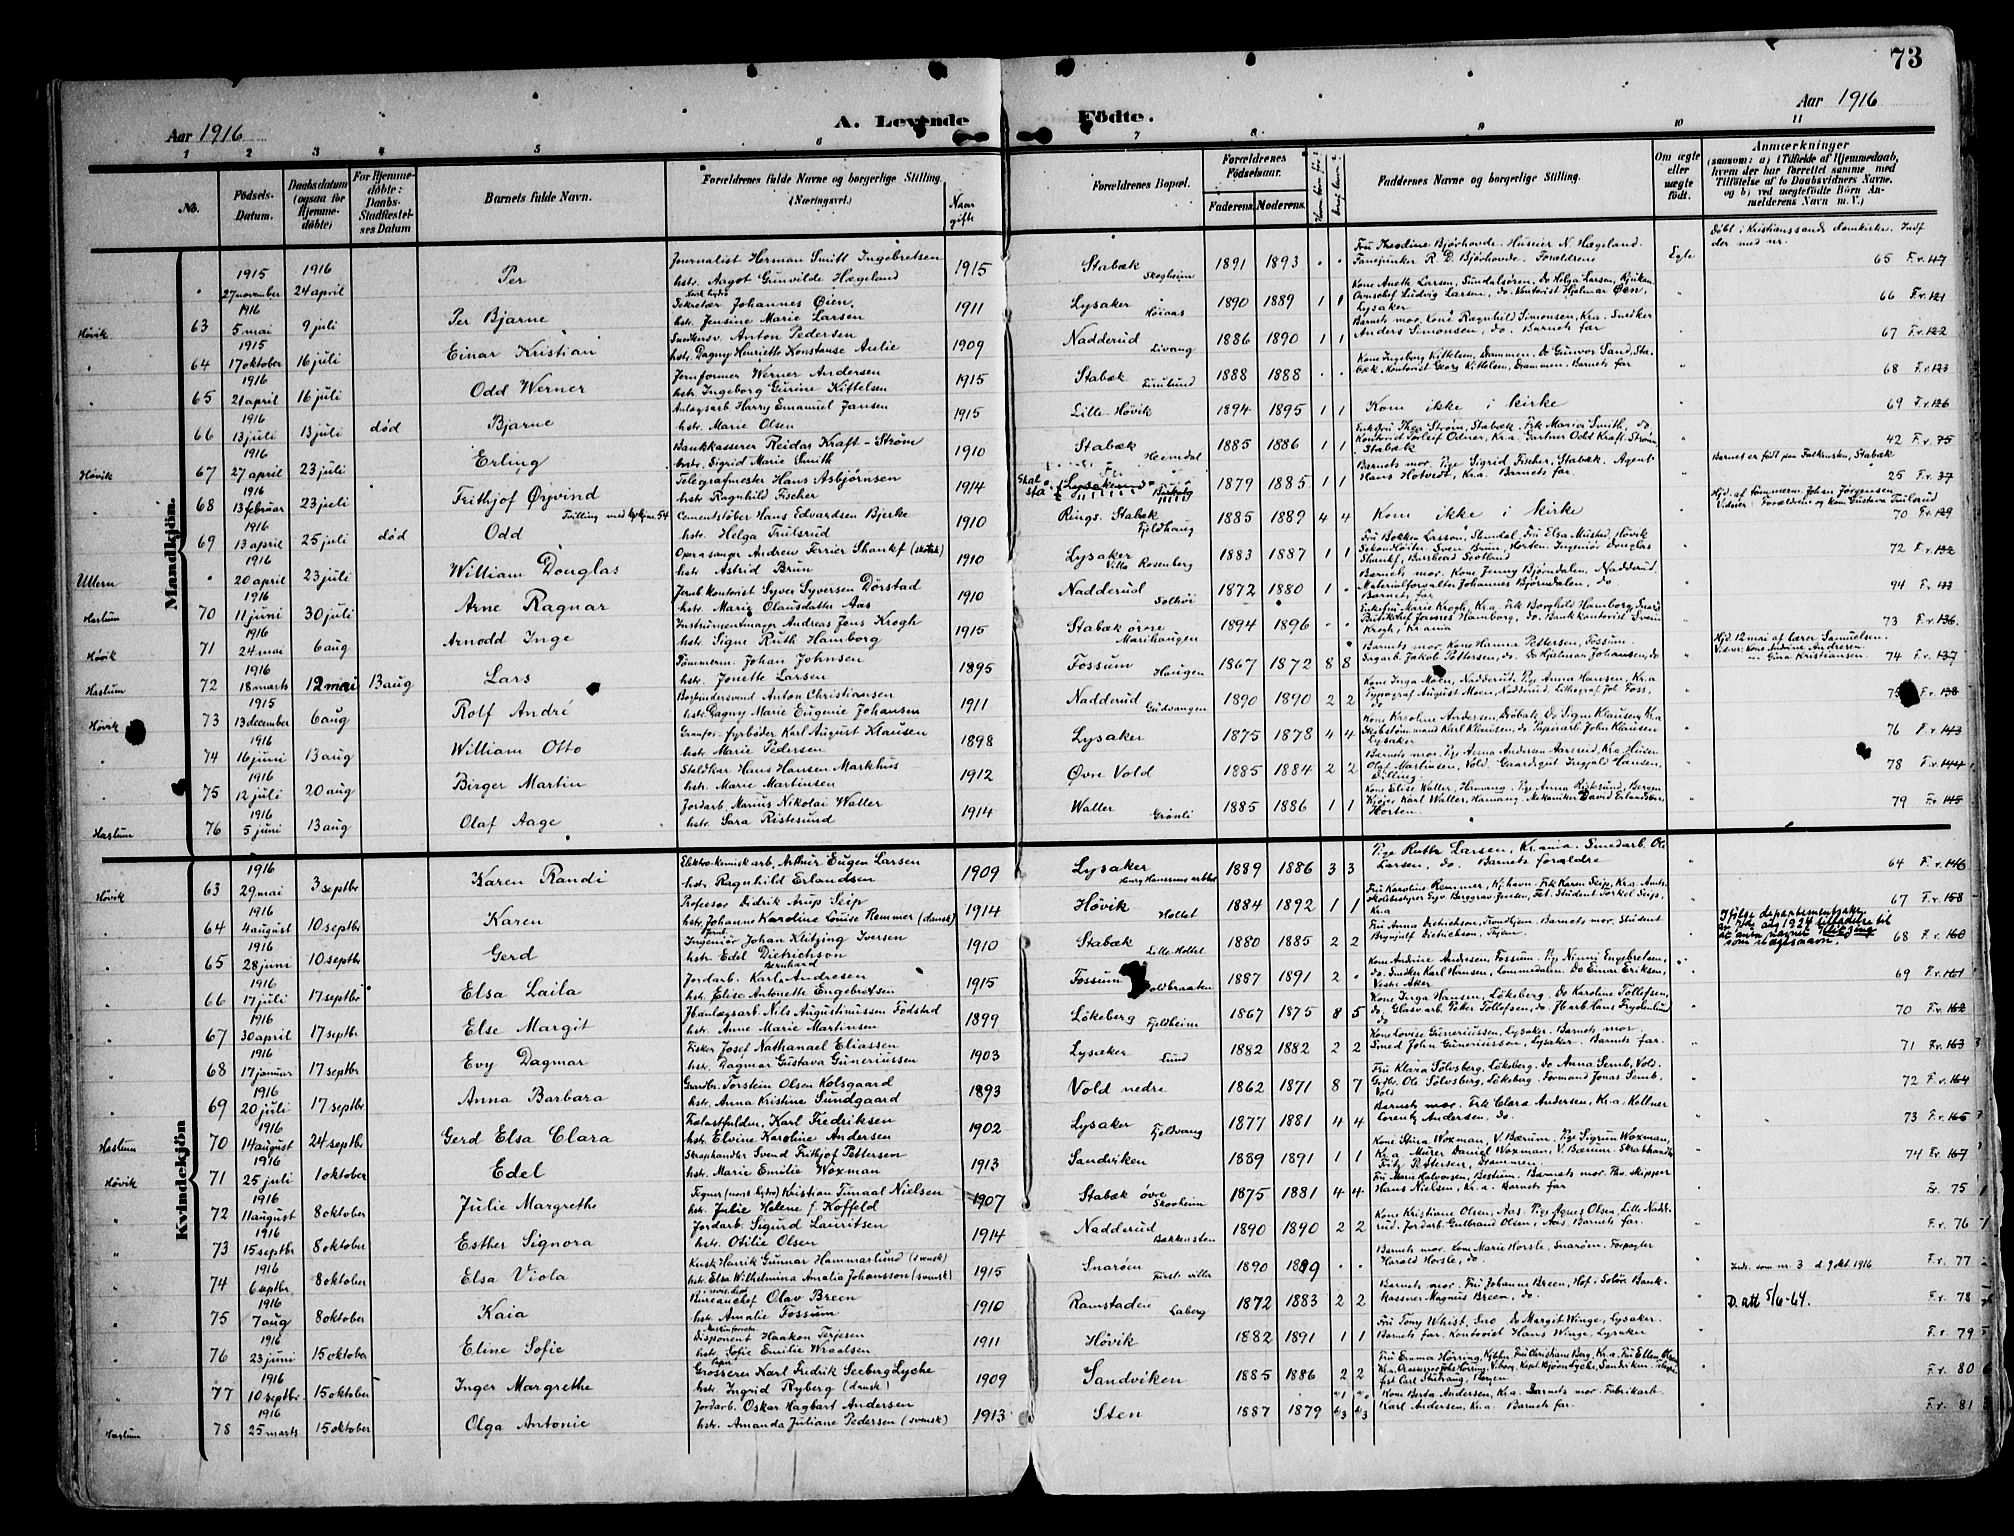 73
Aar 1916 A. Levende Födte. Aar 1916
1 2 3 4 5 6 7 8 9 10 11
No. Födsels-Datum. Daabsdatum (ogsaa for Hjemme-döbte) For Hjemme-döbte: Daabs-Stadfæstel-ses Datum Barnets fulde Navn. Forældrenes fulde Navne og borgerlige Stilling. (Næringsvei.) Naar gifte Forældrenes Bopæl. Forældrenes Födselsaar. Faderens. Moderens. Faddernes Navne og borgerlige Stilling. Om ægte eller uægte födt. Anmærkninger (saasom: a) i Tilfælde af Hjemmedaab, hvem der har forrettet samme med Tilföielse af to Daabsvidners Navne. og b) ved uægtefödte Börn Anmelderens Navn m. V.)
Mandkjön.
1915 1916 Journalist Herman Smitt Ingebretsen Fru Theodine Bjørhovde. Husier N. Hægeland. Døbt i Kristianssands domkirke. Indf
" 27 november 24 april Per hstr. Aagot Gunvilde Hægeland 1915 Stabæk Skogheim 1891 1893 " " Fanejunker R. D. Bjørhovde. Forældrene Egte der med nr. 65 F.v. 117
1916 Sekretær Johannes Øien Kone Aneth Larsen, Sundalsøren. Do Helga Larsen, Rjukan
Høvik 63 5 mai 9 juli Per Bjarne hstr. Jensine Marie Larsen 1911 Lysaker Høiaas 1890 1889 1 1 Ovnschef Ludvig Larsen, do. Kontorist Hjalmar Øen, Lysaker " 66 F.v. 121
1915 Snedkersv. Anton Pedersen Barnets mor, Kone Ragnhild Simonsen, Kr.a. Snedker
" 64 17 oktober 16 juli Einar Kristian hstr. Dagny Henriette Konstanse Aulie 1909 Nadderud Livang 1886 1890 1 1 Anders Simonsen, do. Barnets far " 67 F.v. 122
1916 Jernformer Werner Andersen Kone Ingeborg Kittelsen, Drammen. Do Gunvor Sand, Sta-
" 65 21 april 16 juli Odd Werner hstr. Ingeborg Gurine Kittelsen 1915 Stabæk Furulund 1888 1888 " " bæk. Kontorist Georg Kittelsen, Drammen. Barnets far " 68 F.v. 123
1916 Anlægsarb. Harry Emanuel Jansen
" 66 13 juli 13 juli død Bjarne hstr. Marie Olsen 1915 Lille Høvik 1894 1895 1 1 Kom ikke i kirke " 69 F.v. 126
1916 Bankkasserer Reidar Kraft-Strøm Enkefru Thea Strøm, Stabæk. Frk Maria Smith, do
Høvik 67 27 april 23 juli Erling hstr. Sigrid Marie Smith 1910 Stabæk Heimdal 1885 1886 1 1 Kontorist Torleif Odner, Kr.a. Gartner Odd Kraft-Strøm, Stabæk " 42 F.v. 75
1916 Telegrafmester Hans Asbjørnsen Barnets mor. Pige Sigrid Fischer, Stabæk. Agent Barnet er født paa Falkensten, Stabæk
" 68 13 februar 23 juli Frithjof Øyvind hstr. Ragnhild Fischer 1914 Lysaker 1879 1885 1 1 Hans Hotvedt, Kr.a. Barnets far " 25 F.v. 37
1916 Tvilling med kvkjøn 54 Cementstøber Hans Edvardsen Bjerke Rings. Stabæk Hjd. af tømmerm. Johan Jørgensen
" 69 13 april 25 juli død Odd hstr. Helga Trulsrud 1910 Fjeldhaug 1885 1889 4 4 Kom ikke i kirke " Vidner: Forældrene og kone Gustava Trulsrud 70 F.v. 129
1916 Operasanger Andrew Ferrier Shanks (skotsk) Fru Bokken Lasson, Slemdal. Fru Elsa Mustad, Høvik
Ullern " 20 april 23 juli William Douglas hstr. Astrid Brun 1910 Lysaker Villa Rosenberg 1883 1887 1 1 Sven Brun, Horten. Ingeniør Douglas Shanks, Scotland " 72 F.v. 132
1916 Jernb. kontorist Syver Syversen Dørstad Barnets mor. Kone Jenny Bjørndalen, Nadderud.
Haslum 70 11 juni 30 juli Arne Ragnar hstr. Marie Olausdatter Aas 1910 Nadderud Solhøi 1872 1880 1 " Materialforvalter Johannes Bjørndalen, do Barnets far " 94 F.v. 133
1916 Instrumentmager Andreas Jens Krogh Enkefru Marie Krogh, Kr.a. Frk Borghild Hamborg,
Høvik 71 24 mai 6 aug Arnodd Inge hstr. Signe Ruth Hamborg 1915 Stabæk øvre Marihaugen 1894 1896 " " Hamborg, do. Bank kontorist Svein Krogh, Kr.ania " 73 F.v. 136
1916 Tømmerm. Johan Johnsen Barnets mor. Kone Hanna Pettersen, Fossum. Hjd. 12 mai af lærer Samuelsen.
Haslum 72 18 marts 12 mai 13 aug Lars hstr. Jonette Larsen 1895 Fossum Haugen 1867 1872 8 8 Sagarb. Jakob Pettersen, do. Hjalmar Johansen, do " Vidner: Kone Andrine Andresen " Gina Kristiansen 74 F.v. 137
1915 Anton Christiansen Kone Inga Moen, Nadderud. Pige Anna Hansen, Kr.a
Høvik 73 13 december 6 aug Rolf André hstr. Dagny Marie Eugenie Johansen 1911 Nadderud Gudvangen 1890 1890 2 2 Typograf August Moen, Nadderud. Lithograf Joh. Foss, do " 75 F.v. 138
1916 fyrbøder Karl August Klausen Kone Karoline Andersen, Drøbak. Do Signe Klausen, Kr.a
" 74 16 juni 13 aug William Otto hstr. Marie Pedersen 1898 Lysaker 1875 1878 4 4 Karl Klausen, do. Papirarb. John Klausen Lysaker " 76 F.v. 143
1916 Staldkar Hans Hansen Markhus Barnets mor. Pige Anna Andersen Aarsrud, Kr.a.
" 75 12 juli 20 aug Birger Martin hstr. Marie Martinsen 1912 Øvre Vold 1885 1884 2 2 Olaf Martinsen, Vold. Gaardsgut Ingvald Hansen, " 78 F.v. 144
1916 Jordarb. Marius Nikolai Waller Kone Elise Waller, Pige Anna Ristesund, Bergen
Haslum 76 5 juni 13 aug Olaf Aage hstr. Sara Ristesund 1914 Waller Grønli 1885 1886 1 1 Karl Waller, Mekaniker David Erlandsen, Horten. " 79 F.v. 145
Kvindekjön
1916 Elektro-kemisk arb. Arthur Eugen Larsen Pige Ruth Larsen, Kr.ania. Smedarb. Ol.
Høvik 63 29 mai 3 septbr Karen Randi hstr. Ragnhild Erlandsen 1909 Lysaker 1889 1886 3 3 Larsen, do. Barnets forældre " 64 F.v. 146
1916 Professor Didrik Arup Seip Fru Karoline Remmer, Kj.havn. Frk Karen Seip, Kr.a. Amts-
" 64 4 august 10 septbr Karen hstr. Johanne Karoline Louise Remmer (dansk) 1914 Høvik Hollet 1884 1892 1 1 Student Torkel Seip, Kr.a " 67 F.v. 158
1916 Ingeniør Johan Klitzing Iversen Fru Anna Dietrichson, Trondhjem. Barnets mor. Student
" 65 28 juni 10 septbr Gerd hstr. Edel Dietrichson 1910 Stabæk Lille Hollet 1880 1885 2 2 Brynjulf Dietrichson, " Ifølge departementsskr. av aug 1924 tilladelse til at anta navnet Klitzing som slægtsnavn. 68 F.v. 160
1916 Jordarb. Karl Bernhard Andresen Kone Andrine Andresen, Fossum. Pige Ninni Engebretsen,
" 66 17 juli 17 septbr Elsa Laila hstr. Elise Antonette Engebretsen 1915 Fossum Voldbraaten 1887 1891 2 " do. Snedker Karl Hansen, Lommedalen. Do Einar Eriksen, Vestre Aker " 69 F.v. 161
1916 Jbanlægsarb. Nils Augustinussen Fodstad Kone Inga Hansen, Løkeberg. Do Karoline Tollefsen,
" 67 30 april 17 septbr Else Margit hstr. Anne Marie Martinsen 1899 Løkeberg Fjeldheim 1867 1875 8 5 do. Glasv.arb. Petter Tollefsen, do. Jb.arb. Hans Frydenlund do " 70 F.v. 162
1916 Fisker Josef Nathanael Eliassen Kone Lovise Guneriussen, Lysaker. Barnets mor.
" 68 17 januar 17 septbr Evy Dagmar hstr. Dagmar Gustava Guneriussen 1903 Lysaker Lund 1882 1882 2 2 Smed John Guneriussen, Lysaker. Barnets far. " 71 F.v. 163
1916 Grdbr. Torstein Olsen Kolsgaard Fru Klara Sølvsberg, Løkeberg. Do Anna Semb, Vold.
" 69 20 juli 17 septbr Anna Barbara hstr. Anna Kristine Sundgaard 1893 Vold nedre 1862 1871 8 7 Grdbr. Ole Sølvsberg, Løkeberg. Formand Jonas Semb, Vold " 72 F.v. 164
1916 Karl Fredriksen Barnets mor. Frk Clara Andersen, Kr.a. Kellner
Haslum 70 14 august 24 septbr Gerd Elsa Clara hstr. Elvine Karoline Andersen 1902 Lysaker Fjeldvang 1877 1881 4 4 Lorentz Andersen, do. " 73 F.v. 165
1916 Skraphandler Svend Frithjof Pettersen Kone Stina Woxman, V. Bærum. Pige Sigrun Woxman,
Høvik 71 25 juli 1 oktober Edel hstr. Marie Emilie Woxman 1913 Sandviken 1889 1891 1 1 Kr.a. Murer Daniel Woxman, V. Bærum. Skraphandler Fritz Pettersen, Drammen " 74 Fv. 167
1916 Tegner (norsk hydro) Kristian Tunaal Nielsen Fru Marie Halvorsen, Bestum. Barnets mor. Pens. skipper
" 72 11 august 8 oktober Julie Margrethe hstr. Julie Helene f. Koffeld 1907 Stabæk øvre Skogheim 1875 1881 4 4 Hans Nielsen, Kr.a. Barnets far " Fv. 75
1916 Jordarb. Sigurd Lauritsen Kone Kristiane Olsen, Aas. Pige Agnes Olsen, Lille Nadde-
" 73 15 septbr 8 oktober Esther Signora hstr. Otilie Olsen 1914 Nadderud Bakkensten 1890 1890 2 2 rud. Jordarb. Gulbrand Olsen, Aas. Barnets far. " F.v. 76
1916 Kusk Henrik Gunnar Hammarlund (svensk) Barnets mor. Kone Marie Horsle, Snarøen. Forpagter
" 74 6 septbr 8 oktober Elsa Viola hstr. Elsa Wilhelmina Amalia Johansson (svensk) 1915 Snarøen Fürsts villa 1890 1889 " " Harald Horsle, do. " Inds. som nr. 3 d. 9 okt 1916 F.v. 77
1916 Bureauchef Olav Breen Barnets mor. Fru Johanne Breen, Hof i Solør. Bank-
" 75 7 aug 8 oktober Kaia hstr. Amalie Fossum 1910 Ramstaden Laberg 1872 1883 2 2 kasserer Magnus Breen, do. " D. att 5/6-64. F.v. 78
1916 Disponent Haakon Terjesen Fru Tony Whist, Do Margit Winge, Lysaker.
" 76 23 juni 15 oktober Eline Sofie hstr. Sofie Emilie Wraalsen 1911 Høvik 1882 1891 1 1 Barnets far. Kontorist Hans Winge, Lysaker " F.v. 79
1916 Grosserer Karl Fredrik Seeberg Lyche Fru Emma Hörring, Kjbhn. Fru Christiane Berg, Kr.a. Fru Ellen
" 77 10 septbr 15 oktober Inger Margrethe hstr. Ingrid Ryberg (dansk) 1909 Sandviken 1885 1886 2 2 Hörring, Viborg. Kapt. Bjørn Lyche, Sandviken. Carl Bergen " F.v. 80
1916 Jordarb. Oskar Hagbart Andersen Kone Berta Andersen, Kr.a. Barnets mor. Fabrikarb.
Haslum 78 25 marts 15 oktober Olga Antonie hstr. Amanda Juliane Pedersen (svensk) 1913 Sten 1887 1879 Karl Andersen, Kr.a. Barnets far. " F.v. 81